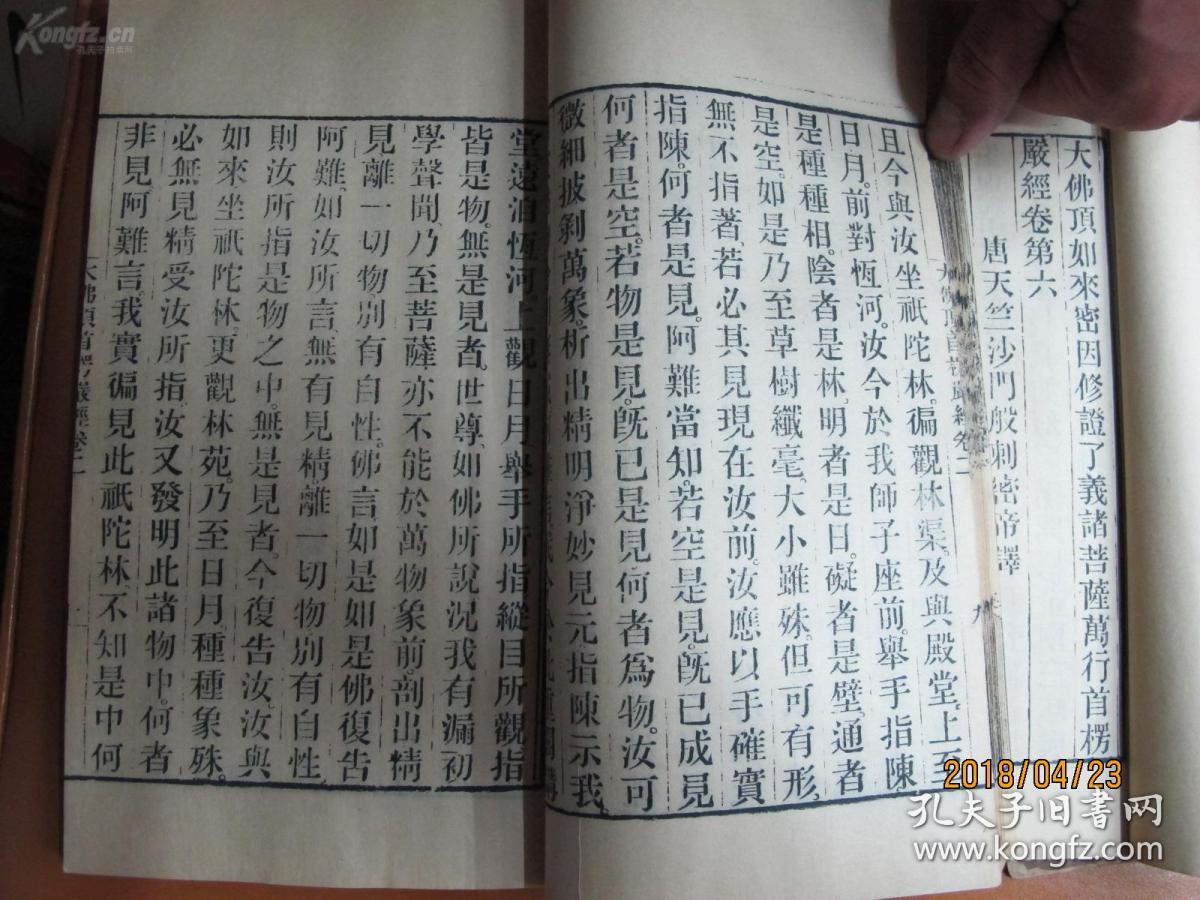 大佛頂如來密因修證了義諸菩薩萬行首楞
嚴經卷第六
唐天竺沙門般剌密帝譯
九
且今與汝坐祇陀林徧觀林渠及與殿堂上至
日月前對恆河汝今於我師子座前舉手指陳
是種種相陰者是林明者是日礙者是壁通者
是空如是乃至草樹纖毫大小雖殊但可有形
無不指著若必其見現在汝前汝應以手確實
指陳何者是見阿難當知若空是見既已成見
何者是空若物是見既已是見何者為物汝可
微細披剝萬象析出精明淨妙見元指陳示我
堂遠洎恆河上觀日月舉手所指縱目所觀指
皆是物無是見者世尊如佛所說況我有漏初
學聲聞乃至菩薩亦不能於萬物象前剖出精
見離一切物別有自性佛言如是如是佛復告
阿難如汝所言無有見精離一切物別有自性
則汝所指是物之中無是見者今復告汝汝與
如來坐祇陀林更觀林苑乃至日月種種象殊
必無見精受汝所指汝又發明此諸物中何者
非見阿難言我實徧見此祇陀林不知是中何
大佛頂首楞嚴經卷二
Kongfz.cn
2018/04/23
孔夫子旧书网
www.kongfz.com